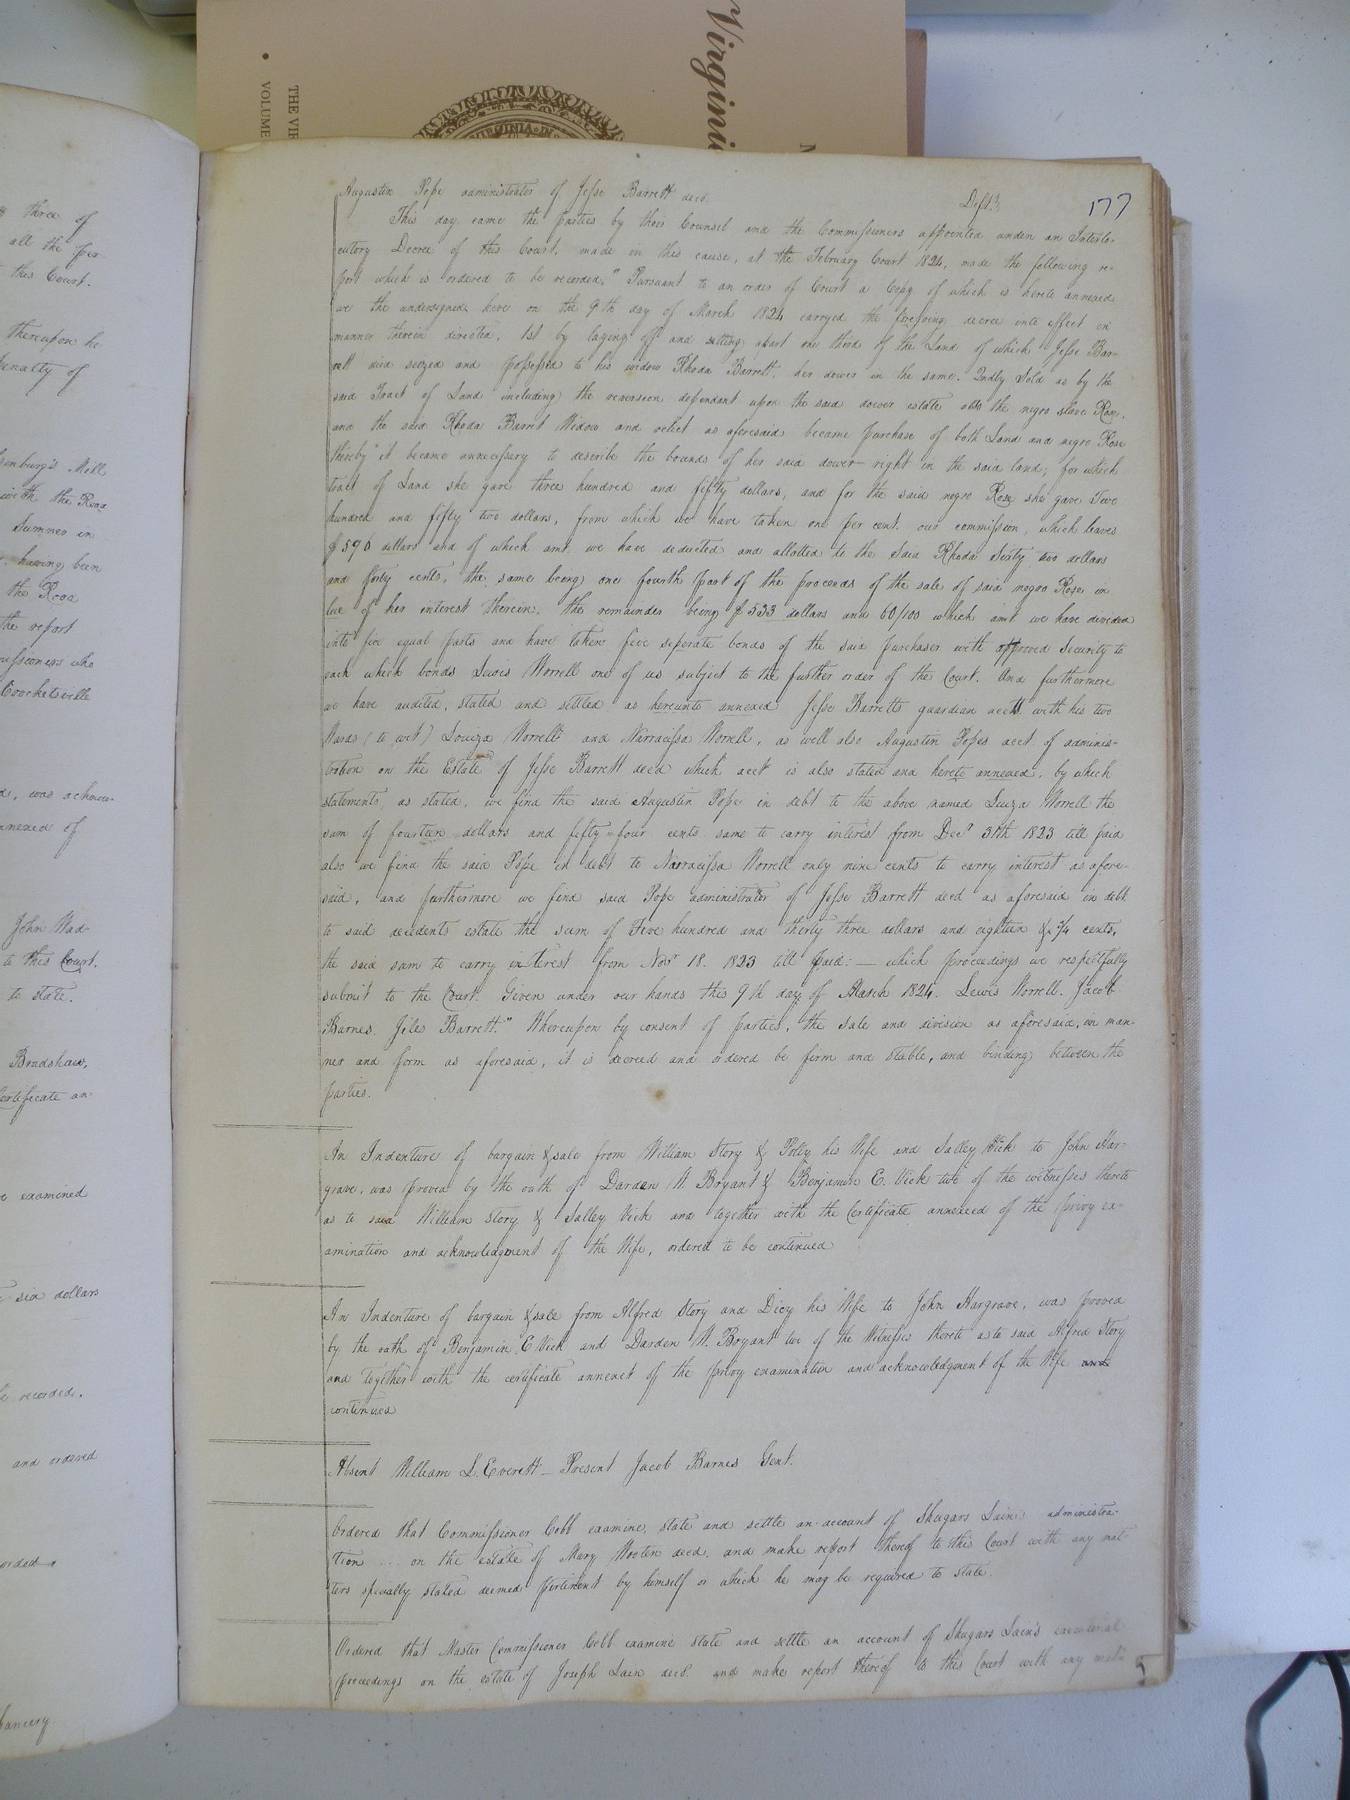 Virgini
THE VIR
VOLUME
VIRGINIA
177
Augustin Pope administrator of Jesse Barrett decd. Deft.
This day came the parties by their Counsel and the Commissioners appointed under an Interlo-
cutory Decree of this Court, made in this cause, at the February Court 1824, made the following re-
port which is ordered to be recorded, " Pursuant to an order of Court a Copy of which is hereto annexed
we the undersigned have on the 9th day of March 1824 carryed the foregoing decree into effect in
manner therein directed, 1st by laying off and setting apart one third of the Land of which Jesse Bar-
rett died seized and possessed to his widow Rhoda Barrett, her dower in the same. 2ndly Sold as by the
said Tract of Land including the reversion dependant upon the said dower estate also the negro slave Rose,
and the said Rhoda Barret Widow and relict as aforesaid became purchase of both Land and negro Rose
thereby it became unnecessary to describe the bounds of her said dower right in the said land; for which
tract of Land she gave three hundred and fifty dollars, and for the said negro Rose she gave Two
hundred and fifty two dollars, from which we have taken one per cent. our commission, which leaves
$ 596 dollars and of which amt. we have deducted and allotted to the Said Rhoda Sixty two dollars
and forty cents, the same being one fourth part of the proceeds of the sale of said negro Rose in
lue of her interest therein. the remainder being $ 533 dollars and 60/100 which amt we have divided
into five equal parts and have taken five seperate bonds of the said purchaser with approved Security to
each which bonds Lewis Worrell one of us subject to the further order of the Court. And furthermore
we have audited, stated and settled as hereunto annexed Jesse Barretts guardian acctt. with his two
Wards (to wit) Louiza Worrell and Narracissa Worrell, as well also Augustin Popes acct. of adminis-
tration on the Estate of Jesse Barrett decd which acct is also stated and hereto annexed, by which
statements as stated, we find the said Augustin Pope in debt to the above named Luiza Worrell the
sum of fourteen dollars and fifty-four cents same to carry interest from Decr 31th 1823 till paid
also we find the said Pope in debt to Narracissa Worrell only nine cents to carry interest as afore-
said, and furthermore we find said Pope administrator of Jesse Barrett decd as aforesaid in debt
to said decedents estate the sum of Five hundred and thirty three dollars and eighteen & 3/4 cents,
the said sum to carry interest from Novr 18. 1823 till paid: — which proceedings we respectfully
submit to the Court. Given under our hands this 9th day of March 1824. Lewis Worrell. Jacob
Barnes. Jiles Barrett." Whereupon by consent of parties, the sale and division as aforesaid, in man-
ner and form as aforesaid, it is decreed and ordered be firm and stable, and binding between the
parties.
An Indenture of bargain & sale from William Story & Polly his Wife and Salley Vick to John Har-
grave, was proved by the oath of Darden W. Bryant & Benjamin E. Vick two of the witnesses thereto
as to said William Story & Salley Vick and together with the Certificate annexed of the privy ex-
amination and acknowledgment of the Wife, ordered to be continued
An Indenture of bargain & sale from Alfred Story and Dicy his Wife to John Hargrave, was proved
by the oath of Benjamin E Vick and Darden W. Bryant two of the Witnesses thereto as to said Alfred Story
and together with the certificate annext of the privy examination and acknowledgment of the Wife and
continued
Absent William L. Everett — Present Jacob Barnes Gent.
Ordered that Commissioner Cobb examine, state and settle an account of Shugars Lain's administra-
tion ... on the estate of Mary Wooten decd. and make report thereof to this Court with any mat-
ters specially stated deemed pertinent by himself or which he may be required to state.
Ordered that Master Commissioner Cobb examine state and settle an account of Shugars Lain's executorial
proceedings on the estate of Joseph Lain decd. and make report thereof to this Court with any matt
three of
all the per
this Court.
thereupon he
penalty of
Mill
with the Road
Sumner in
having been
the Road
the report
missioners who
was acknow-
annexed of
John Wad-
to this Court.
to state.
Bradshaw,
Certificate an-
examined
six dollars
recorded.
and ordered
hancery